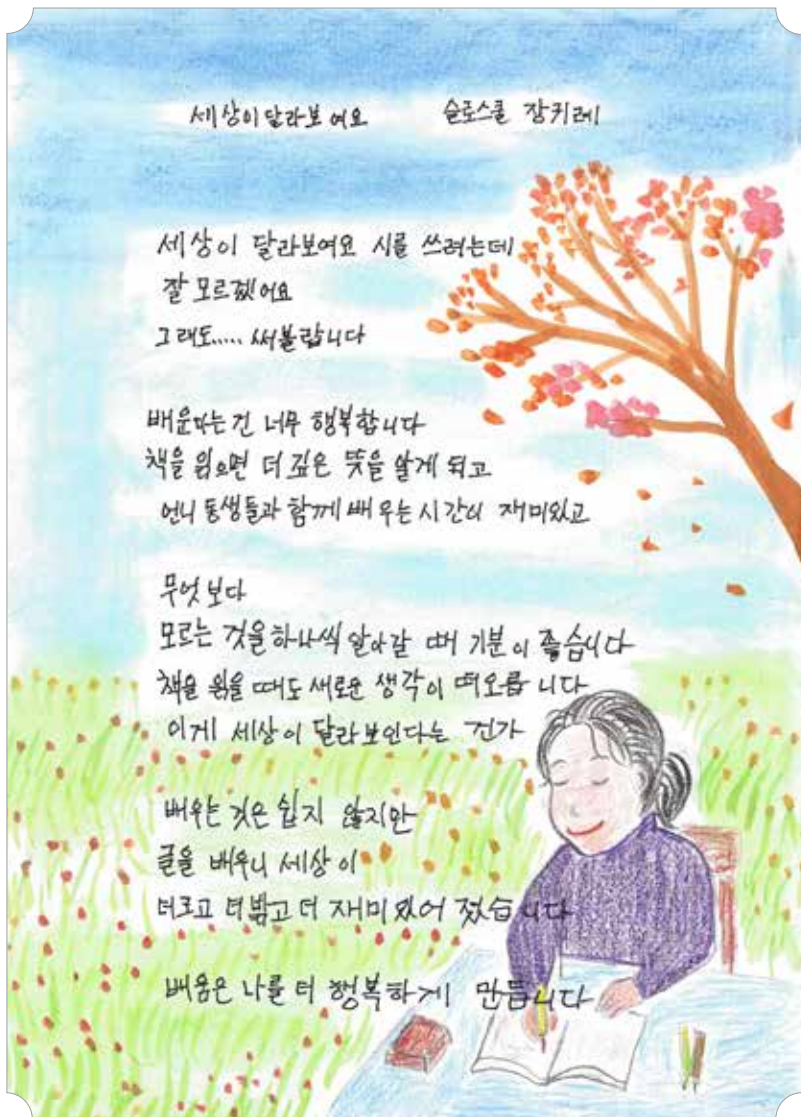 세상이 달라보여요 슬로스쿨 장귀레
세상이 달라보여요 시를 쓰려는데
잘 모르겠어요
그래도..... 써볼랍니다
배운다는건 너무 행복합니다
책을 읽으면 더 깊은 뜻을 알게 되고
언니 동생들과 함께 배우는 시간이 재미있고
무엇보다
모르는 것을 하나씩 알아갈 때 기분이 좋습니다
책을 읽을 때도 새로운 생각이 떠오릅니다
이게 세상이 달라보인다는 건가
배우는 것은 쉽지 않지만
글을 배우니 세상이
더크고 더밝고 더 재미있어 졌습니다
배움은 나를 더 행복하게 만듭니다